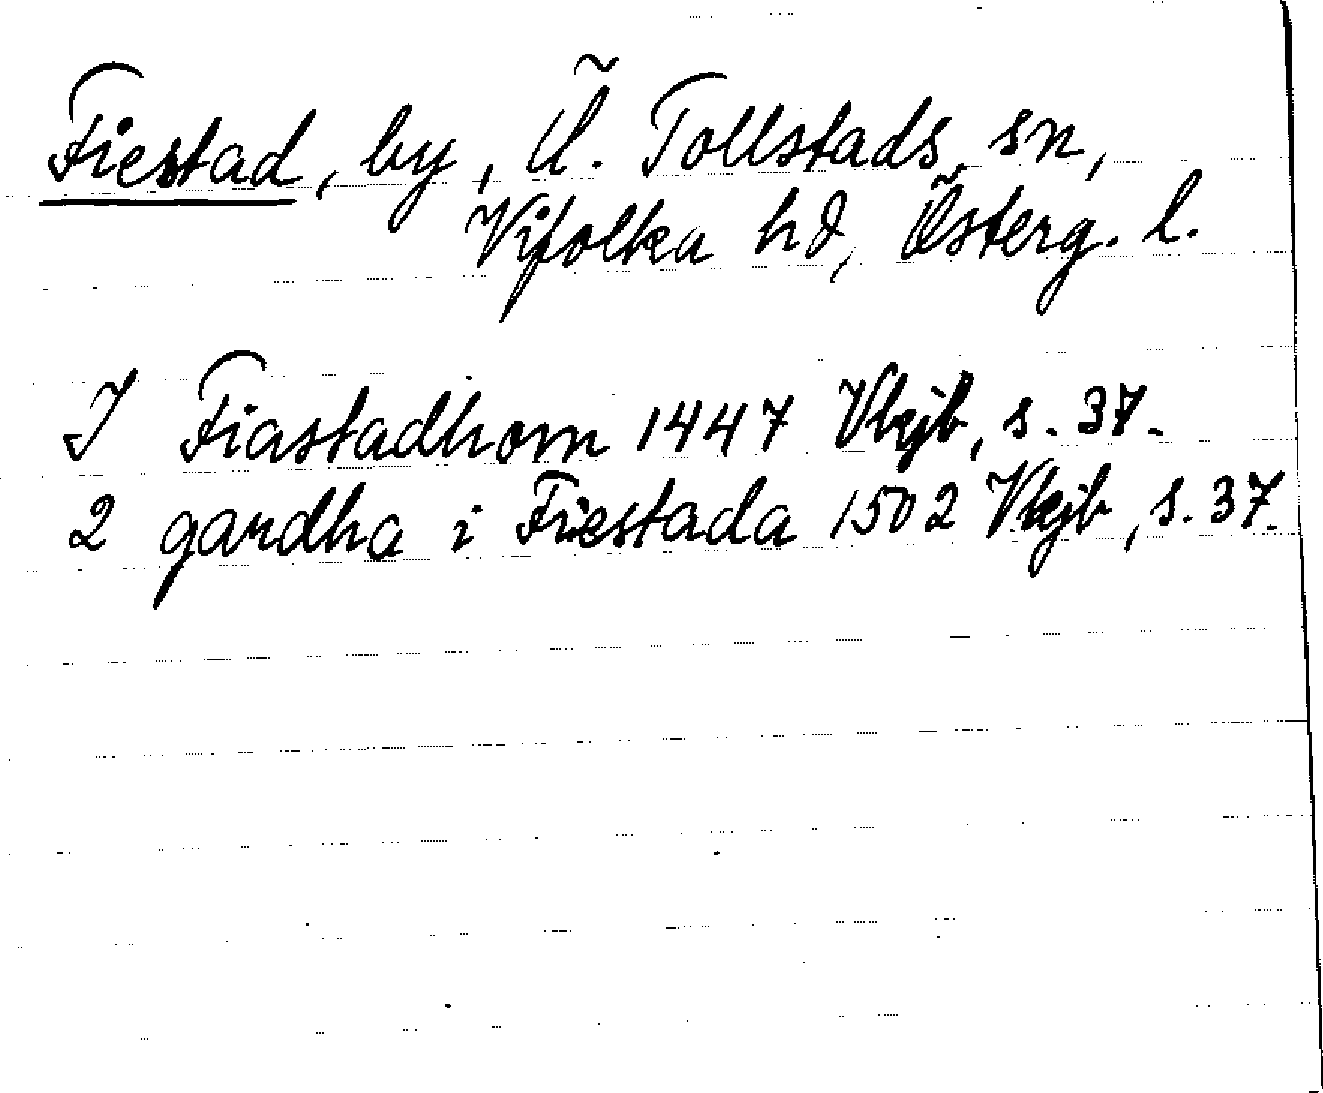 Fiestad, by, Ö. Tollstads sn,
Vifolka hd, Österg. l.
I Fiastadhom 1447 Vkjb, s. 37.
2 gardha i Fiestada 1502 Vkjb, s. 37.